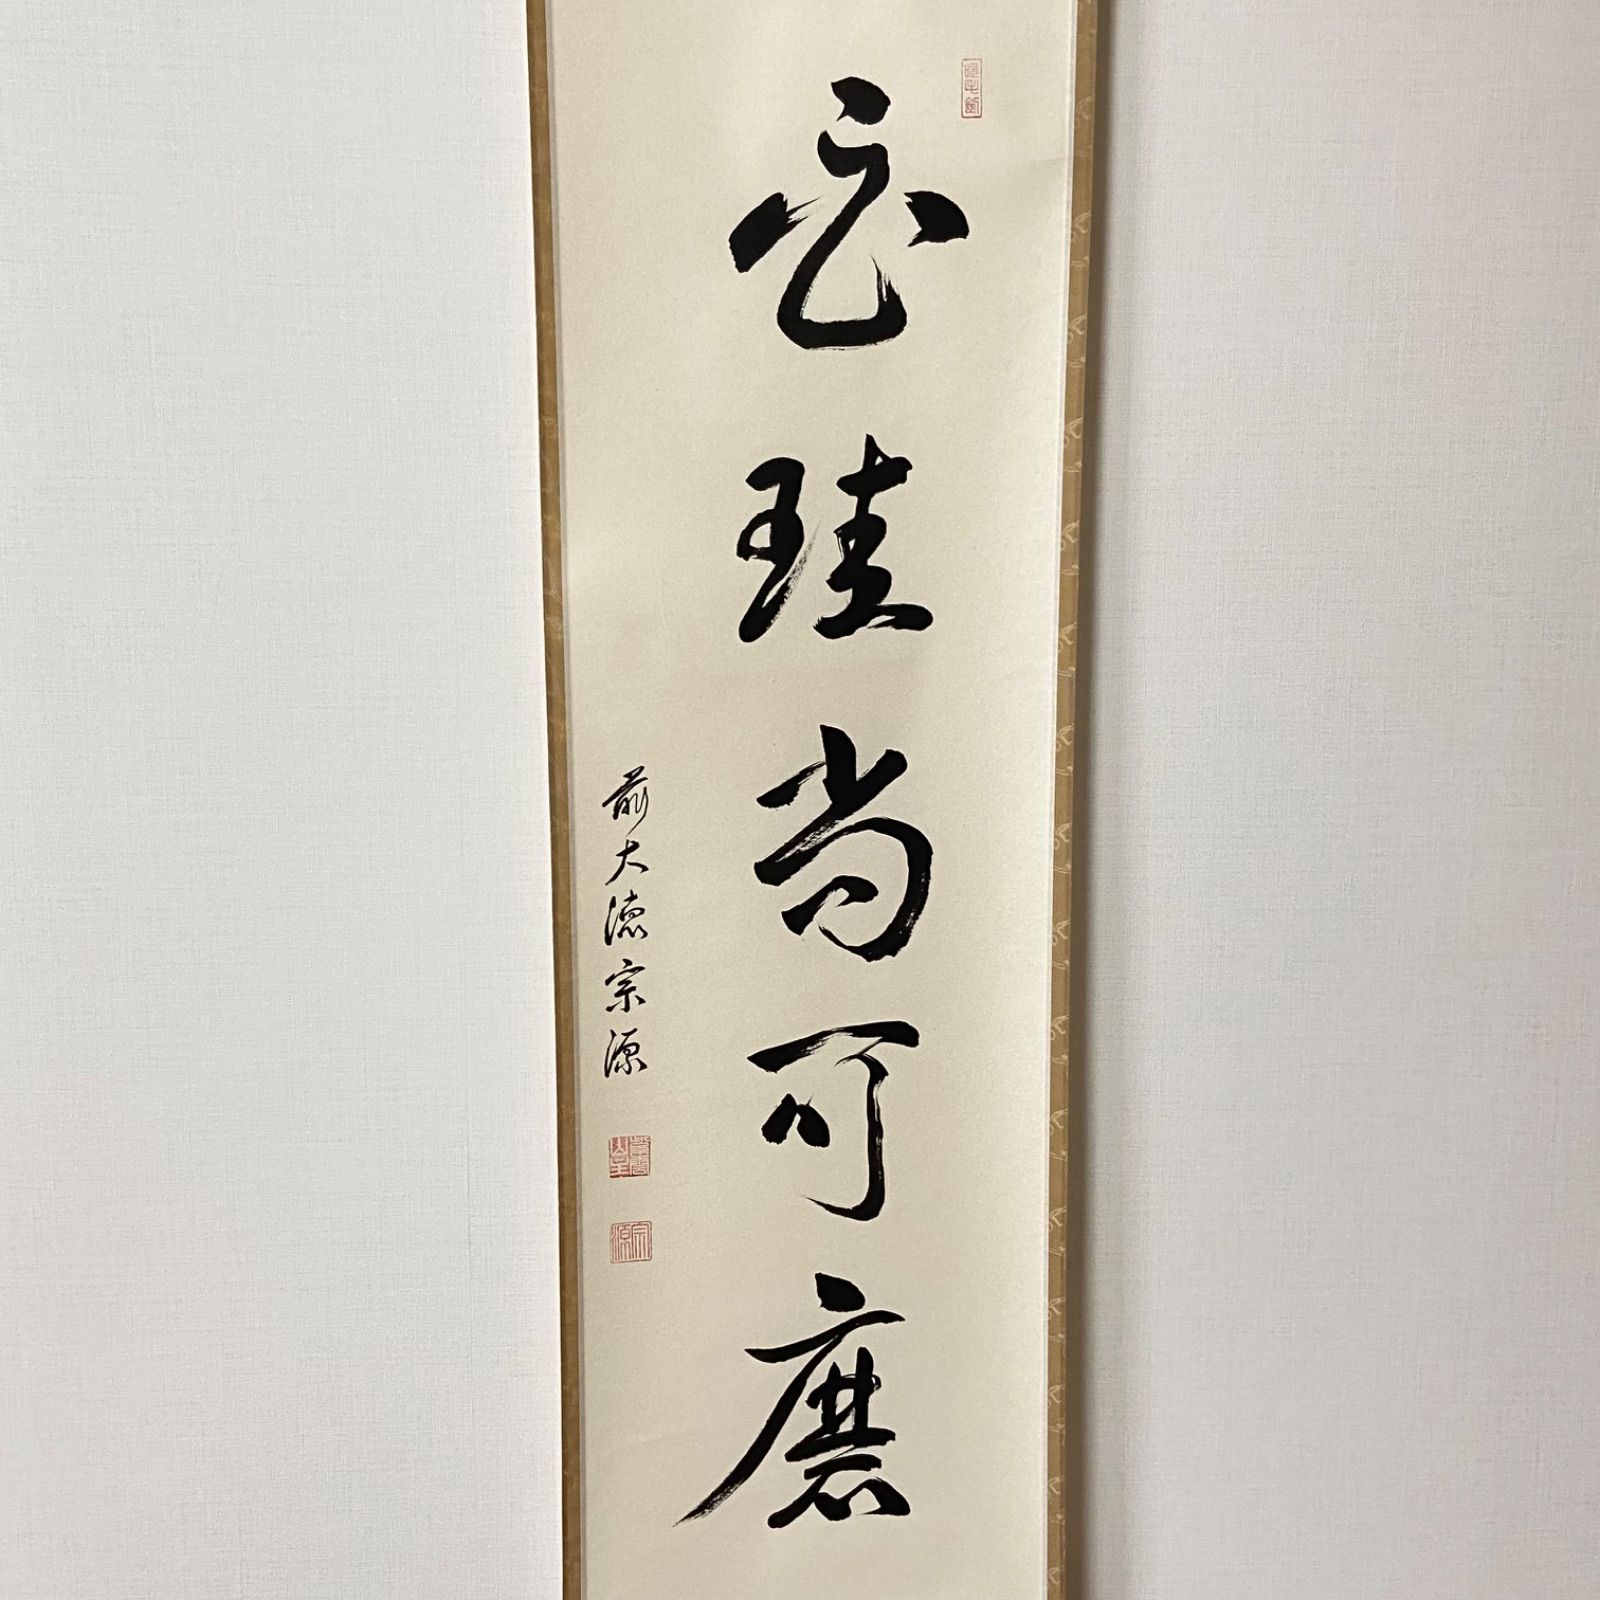 白珪尚可磨
前大徳宗源
宗源